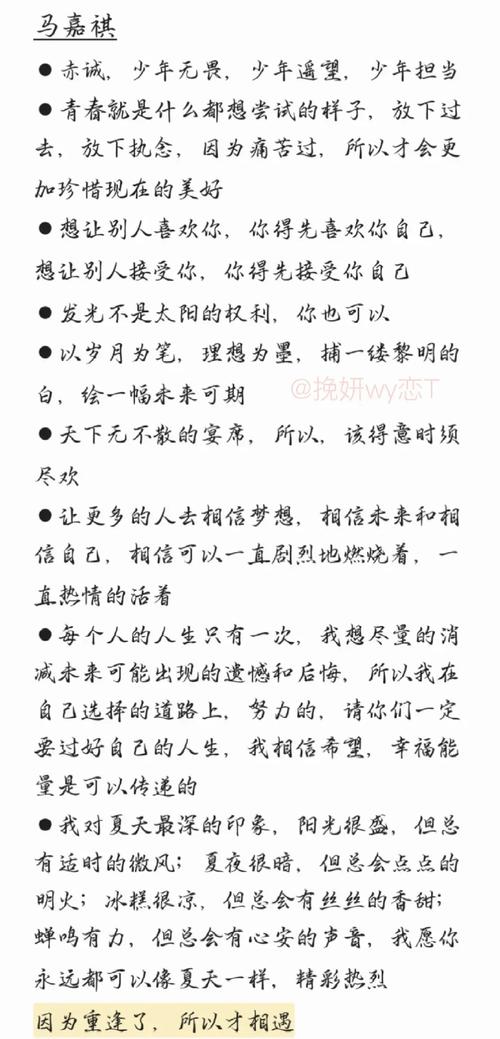 马嘉祺
●赤诚，少年无畏，少年遥望，少年担当
●青春就是什么都想尝试的样子，放下过
去，放下执念，因为痛苦过，所以才会更
加珍惜现在的美好
●想让别人喜欢你，你得先喜欢你自己，
想让别人接受你，你得先接受你自己
●发光不是太阳的权利，你也可以
●以岁月为笔，理想为墨，捕一缕黎明的
白，绘一幅未来可期
@挽妍wy恋T
●天下无不散的宴席，所以，该得意时须
尽欢
●让更多的人去相信梦想，相信未来和相
信自己，相信可以一直剧烈地燃烧着，一
直热情的活着
●每个人的人生只有一次，我想尽量的消
减未来可能出现的遗憾和后悔，所以我在
自己选择的道路上，努力的，请你们一定
要过好自己的人生，我相信希望，幸福能
量是可以传递的
●我对夏天最深的印象，阳光很盛，但总
有适时的微风；夏夜很暗，但总会点点的
明火；冰糕很凉，但总会有丝丝的香甜；
蝉鸣有力，但总会有心安的声音，我愿你
永远都可以像夏天一样，精彩热烈
因为重逢了，所以才相遇